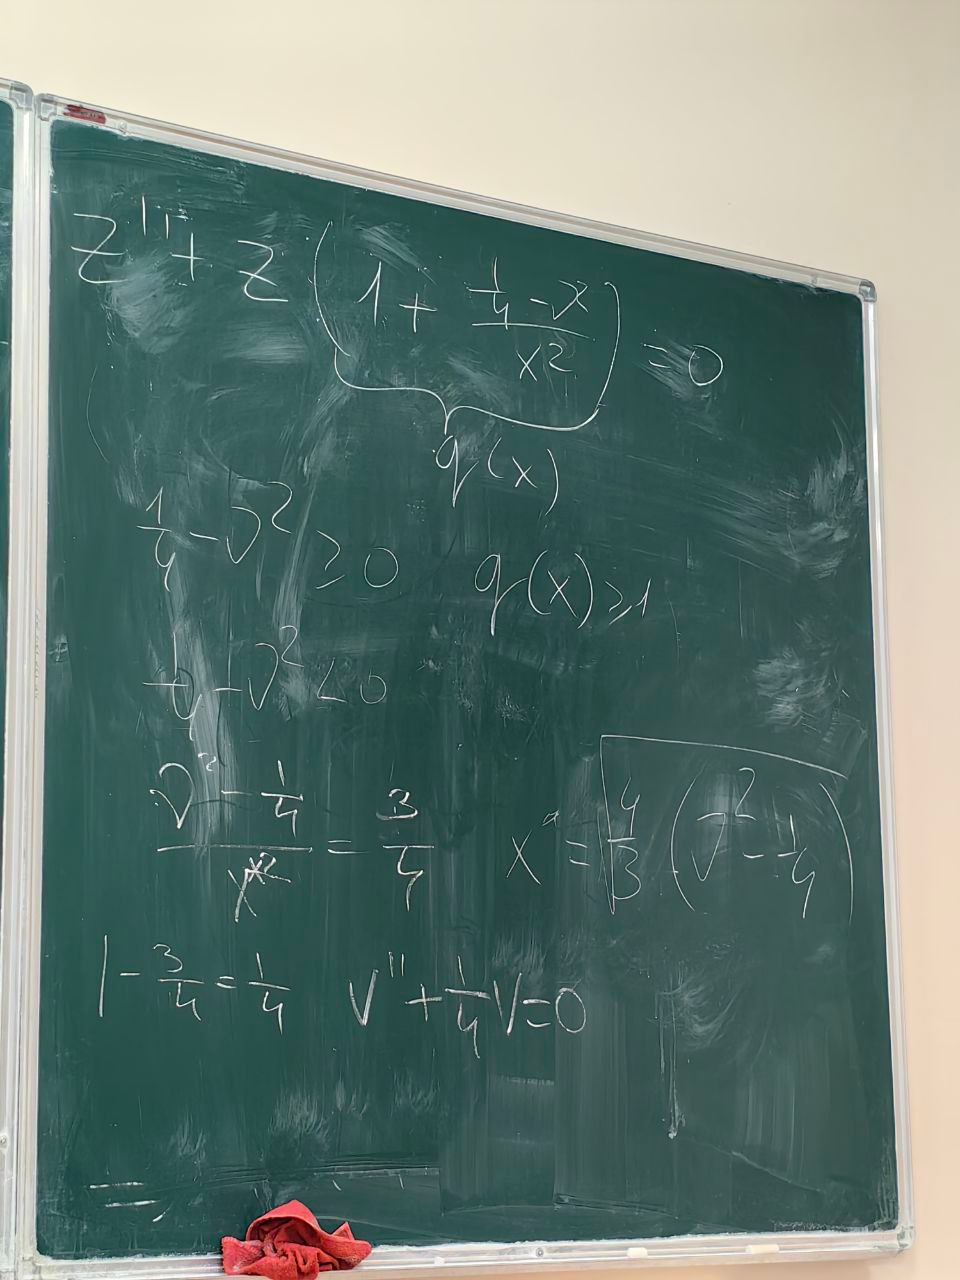 z'' + z (1 + (1/4 - ν²)/x²) = 0
q(x)
1/4 - ν² ≥ 0 q(x) ≥ 1
1/4 - ν² < 0
(ν² - 1/4)/x² = 3/4 x* = √(4/3 (ν² - 1/4))
1 - 3/4 = 1/4 v'' + 1/4 v = 0